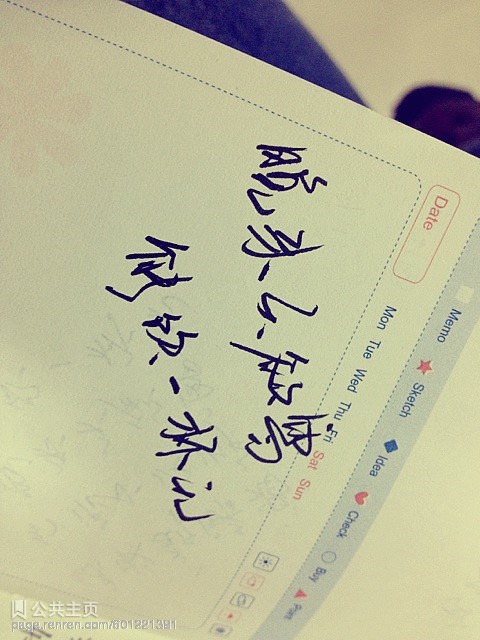 晚来天欲雪
能饮一杯无
Date
Mon Tue Wed Thu Fri Sat Sun
Memo Sketch Idea Check Buy
公共主页
page.renren.com/601221381